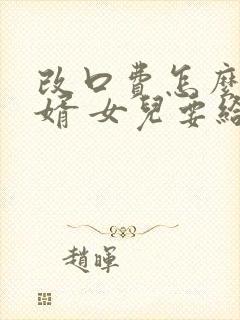 改口費怎麼
婿女兒要給
趙暉